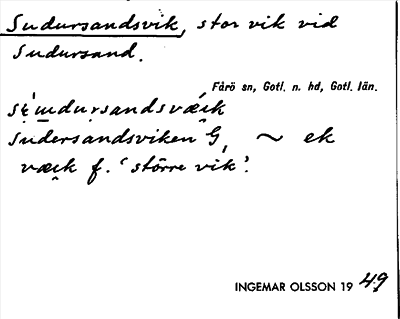 Sudursandsvik, stor vik vid
Sudursand.
Fårö sn, Gotl. n. hd, Gotl. län.
Sudersandsviken G, ~ ek
væik f. 'större vik'.
INGEMAR OLSSON 19 49